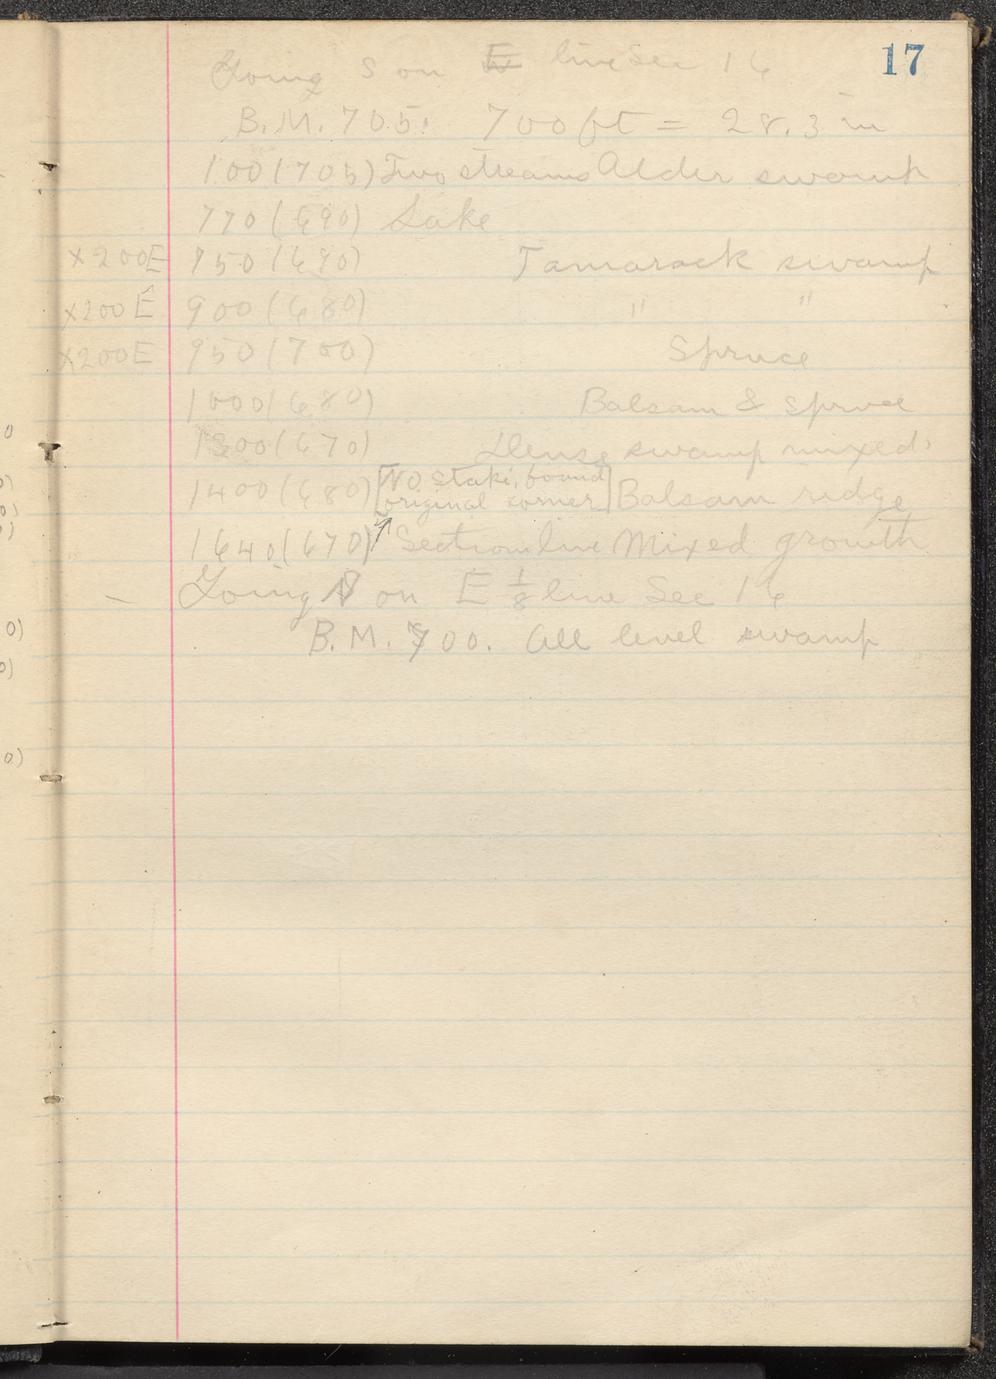 17
Going S on E line Sec 16
B.M. 705. 700 ft = 28.3 in
100 (705) Two streams Alder swamp
770 (690) Lake
x200E 850 (690) Tamarack swamp
x200E 900 (680) " "
x200E 950 (700) Spruce
1000 (680) Balsam & spruce
1300 (670) Dense swamp mixed
1400 (680) [No stake, found original corner] Balsam ridge
1640 (670) Section line Mixed growth
– Going N on E 1/8 line Sec 16
B.M. 700. All level swamp
0
0)
0)
0)
0)
0)
0)